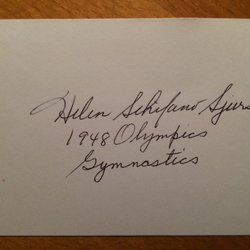 Helen Schifano Sjurs
1948 Olympics
Gymnastics